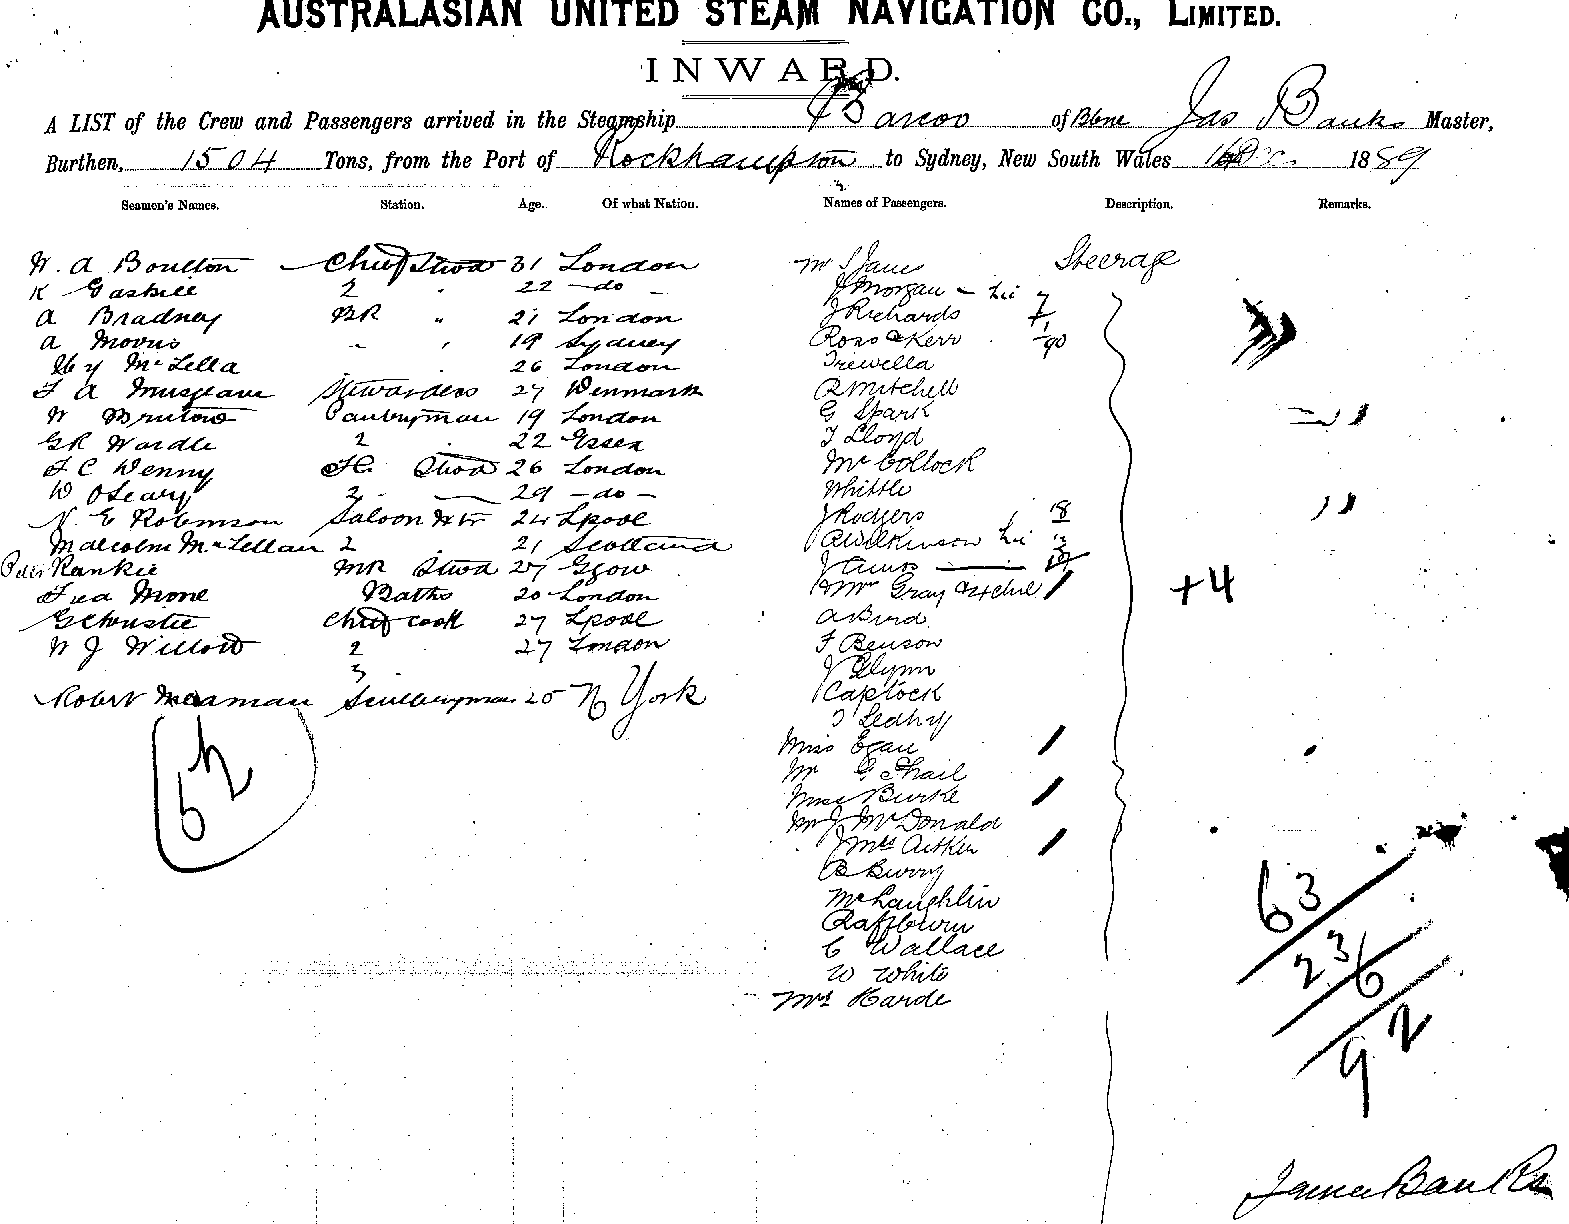 AUSTRALASIAN UNITED STEAM NAVIGATION CO., LIMITED.
INWARD.
A LIST of the Crew and Passengers arrived in the Steamship Barcoo of Bbne Jas Banks Master,
Burthen, 1504 Tons, from the Port of Rockhampton to Sydney, New South Wales 16 Dec. 1889
Seamen's Names. Station. Age. Of what Nation. Names of Passengers. Description. Remarks.
W. A Boulton Chief Stwd 31 London Mr S Jane Steerage
K Gaskill 2 " 22 - do - J Morgan
A Bradney BR " 21 London J Richards
A Morris " " 19 Sydney Ross & Kerr
Hy McLella 26 London Trewella
F A Musgrave Stewardess 27 Denmark R Mitchell
W Pantryman 19 London G Spark
GR Wardle 2 22 Essex T Lloyd
F C Denny Stwd 26 London McCollock
W O'Leary 2 - 29 - do - Whittle
N. E Robinson Saloon Wtr 24 Lpool J Rodgers 18
Malcolm McLellan 2 21 Scotland R Wilkinson
Peter Rankie MR Stwd 27 Ggow J
Fred Mone Baths 20 London Mrs Gray +4
G Christie Chief Cook 27 Lpool A Bird
W J Willott 2 27 London F Benson
3 J Glynn
Robert Sculleryman 25 N York Caplock
T Leahy
Miss Egan
52
Mr G Thail
Miss Burke
Mr J McDonald
Mrs Aitken
B Burry
McLaughlin
63
Rafflown
C Wallace
23/6
W White
Mrs Harde
92
James Banks